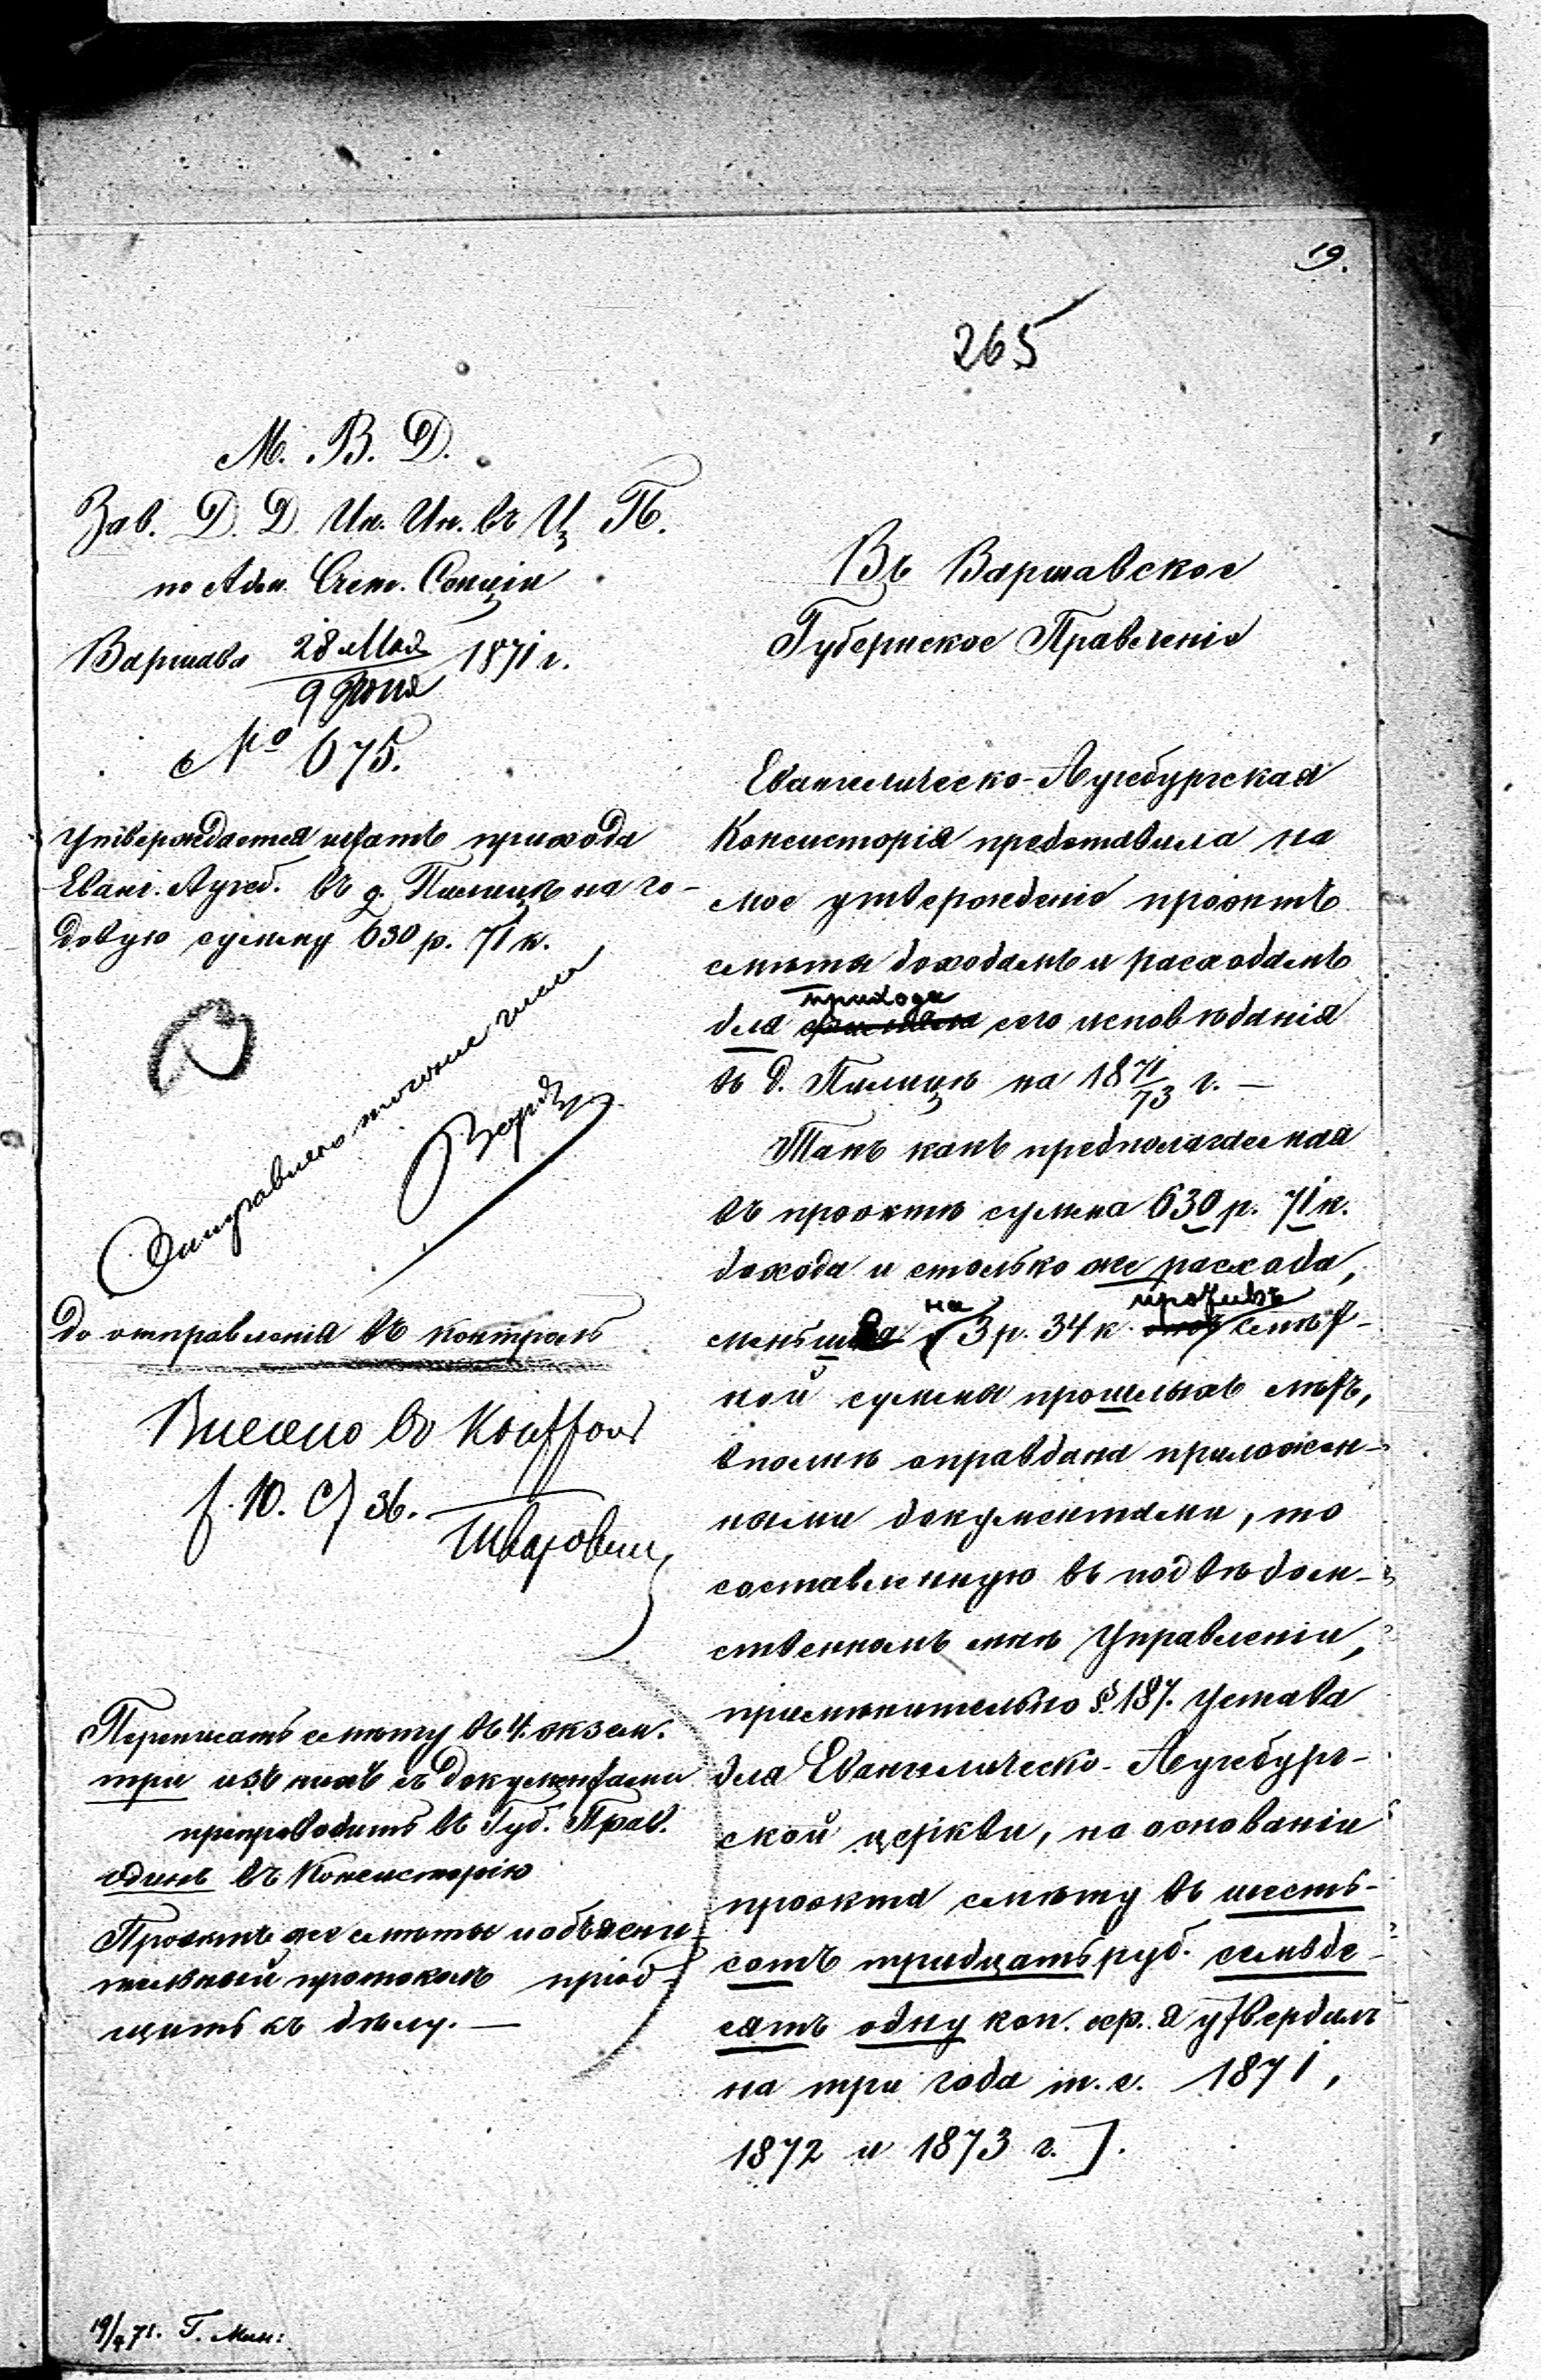 19.
265
М. В. Д.
Зав. Д. Д. Ин. Ин. въ Ц П.
по Адм. Секціи
Варшава 28 Мая / 9 Іюня 1871 г.
№ 675.
Утверждается штатъ прихода
Еванг. Аугсб. въ д. Пилицѣ на го-
довую сумму 630 р. 71 к.
Отправлено тогоже числа
До отправленія въ контроль
Внесено во
f. 10. 36.
Переписать смѣту въ 4. экзем.
три изъ нихъ съ документами
препроводить въ Губ. Прав.
одинъ въ Консисторію
Проэктъ же смѣты и объясни-
тельный протоколъ пріоб-
щить къ дѣлу. —
19/ 71. Г. Мин:
Въ Варшавское
Губернское Правленіе
Евангелическо-Аугсбургская
Консисторія представила на
мое утвержденіе проэктъ
смѣты доходамъ и расходамъ
прихода
для сего исповѣданія
въ д. Пилицѣ на 1871/73 г. —
Такъ какъ предполагаемая
въ проэктѣ сумма 630 р. 71 к.
дохода и столько же расхода,
на противъ
меньшая 3 р. 34 к. смѣт-
ной суммы прошлыхъ лѣтъ,
вполнѣ оправдана приложен-
ными документами, то
составленную въ подвѣдом-
ственномъ мнѣ Управленіи,
примѣнительно § 187. Устава
для Евангелическо-Аугсбург-
ской церкви, на основаніи
проэкта смѣту въ шесть-
сотъ тридцать руб. семьде-
сятъ одну коп. сер. я утвердилъ
на три года т. е. 1871,
1872 и 1873 г. ].